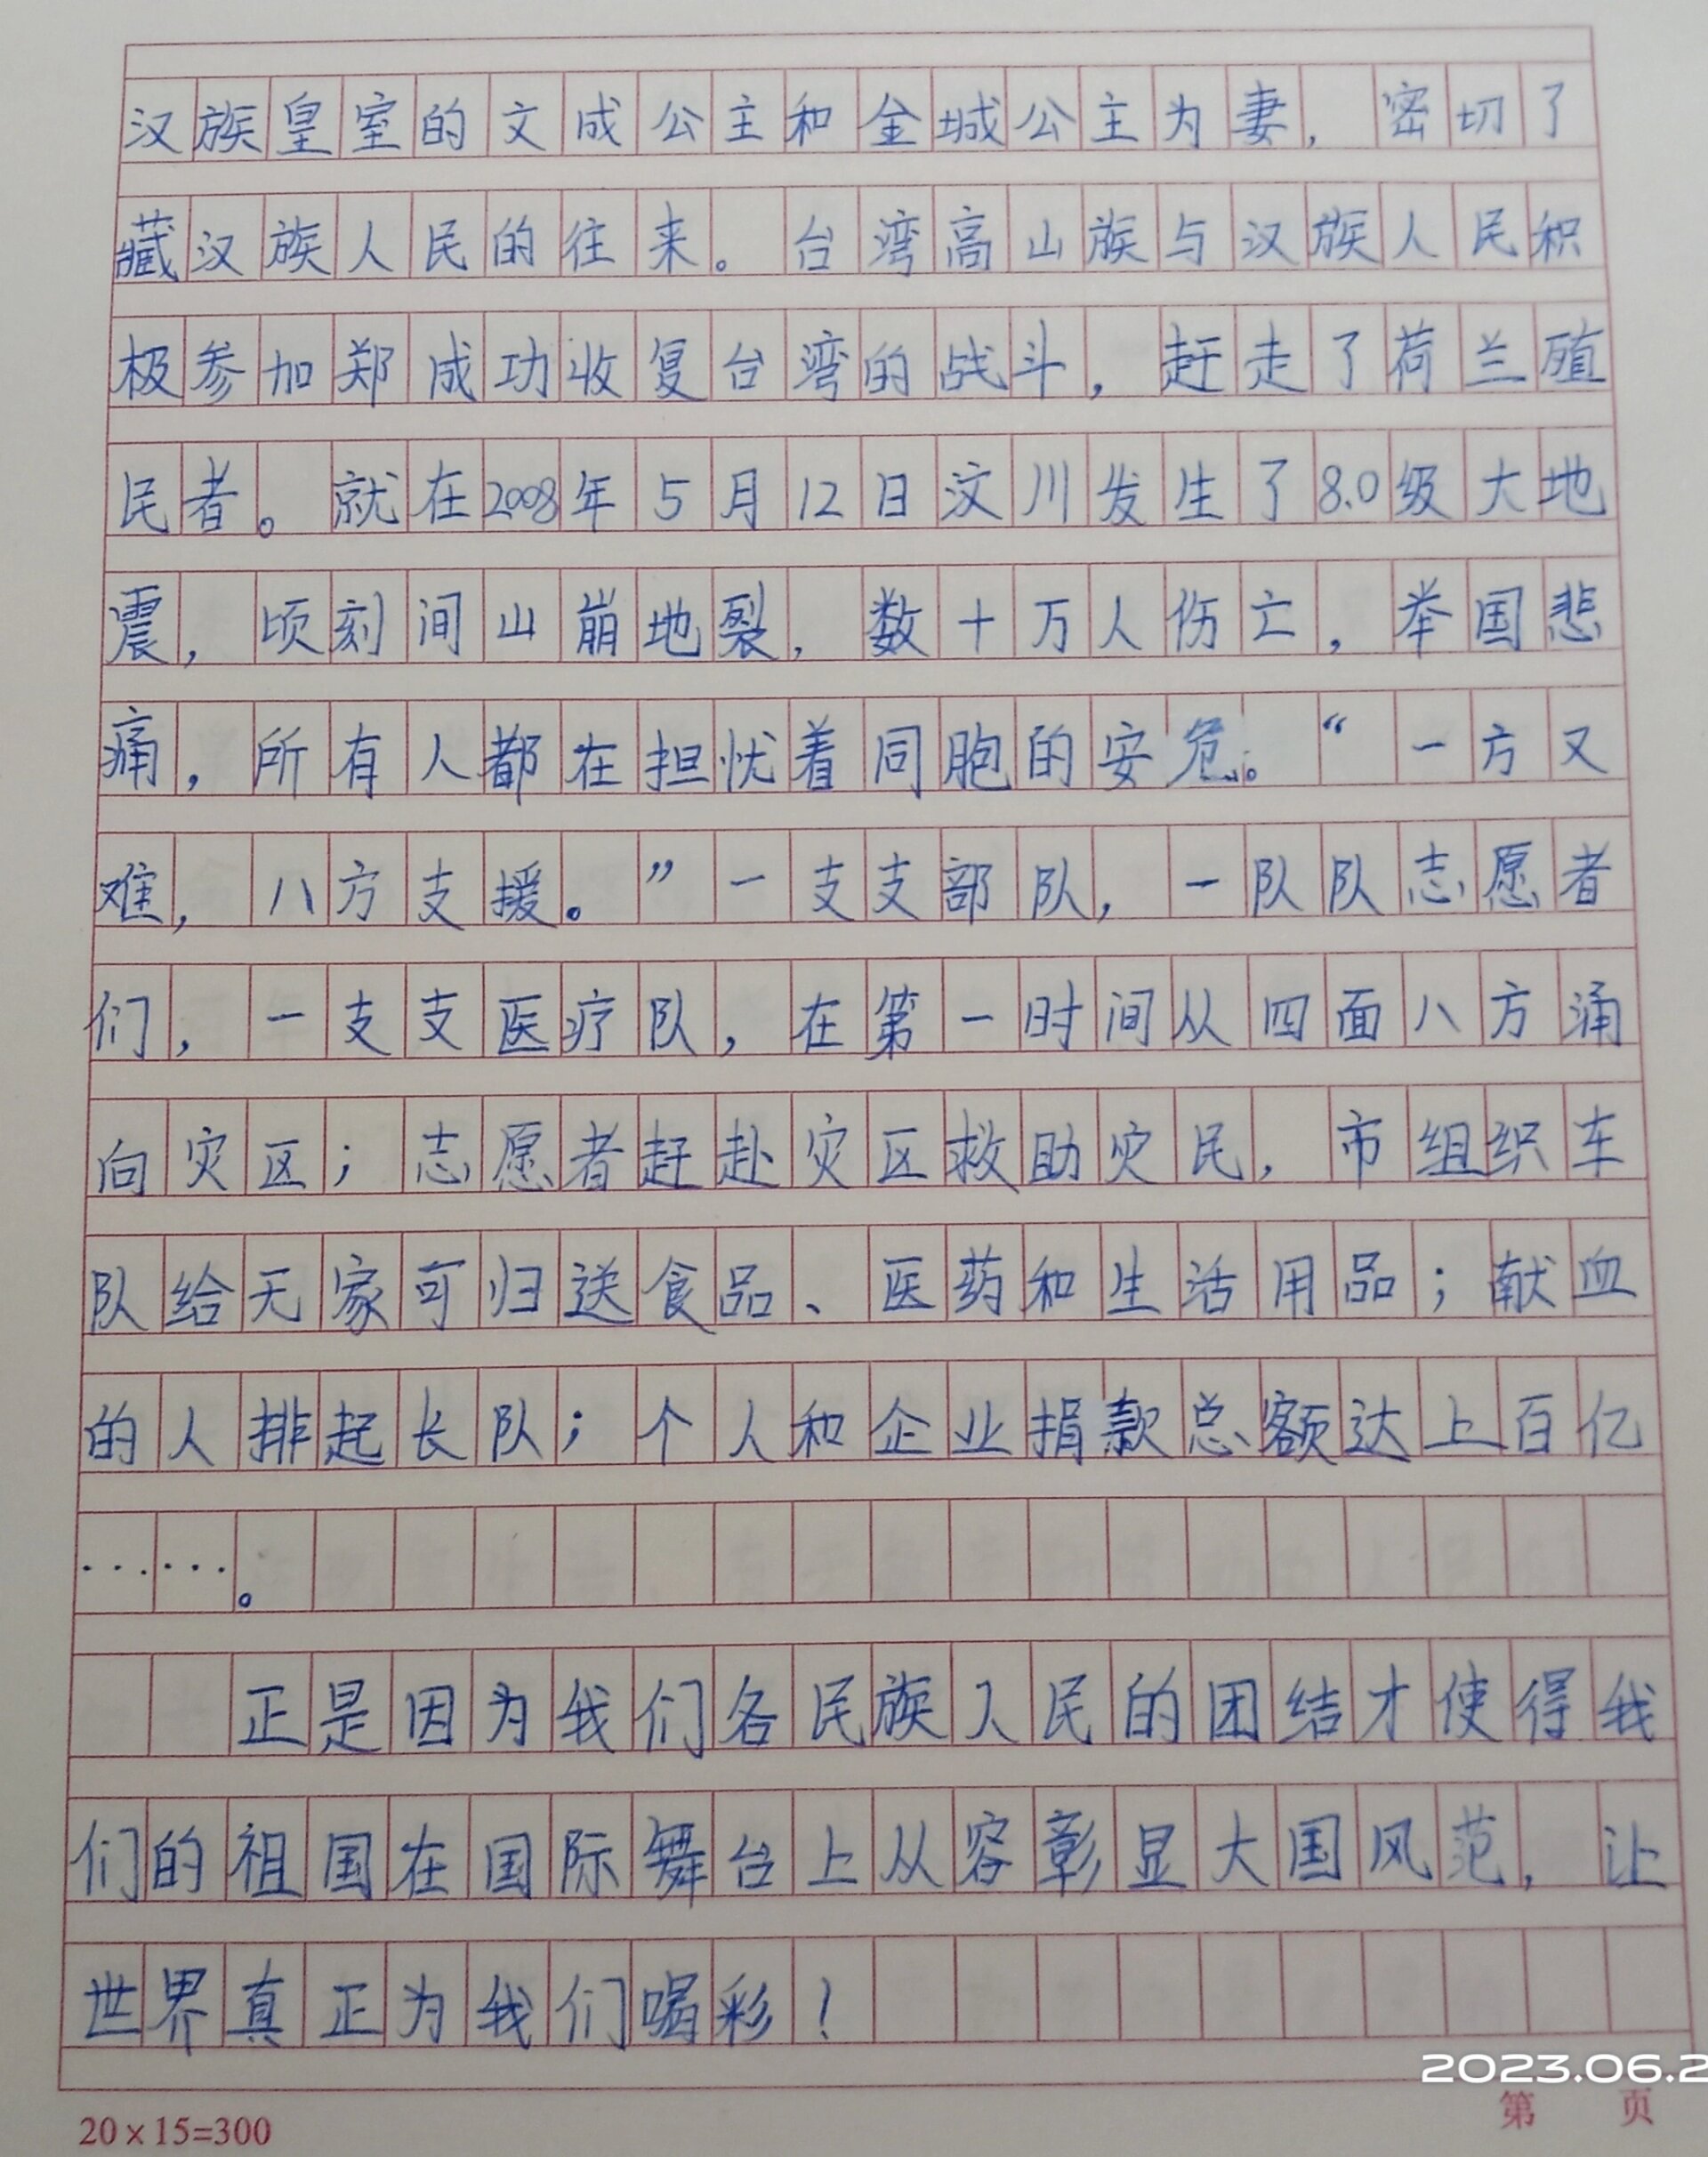 汉族皇室的文成公主和金城公主为妻，密切了
藏汉族人民的往来。台湾高山族与汉族人民积
极参加郑成功收复台湾的战斗，赶走了荷兰殖
民者。就在2008年5月12日汶川发生了8.0级大地
震，顷刻间山崩地裂，数十万人伤亡，举国悲
痛，所有人都在担忧着同胞的安危。“一方又
难，八方支援。”一支支部队，一队队志愿者
们，一支支医疗队，在第一时间从四面八方涌
向灾区；志愿者赶赴灾区救助灾民，市组织车
队给无家可归送食品、医药和生活用品；献血
的人排起长队；个人和企业捐款总额达上百亿
……。
正是因为我们各民族人民的团结才使得我
们的祖国在国际舞台上从容彰显大国风范，让
世界真正为我们喝彩！
2023.06.2
20×15=300
第 页